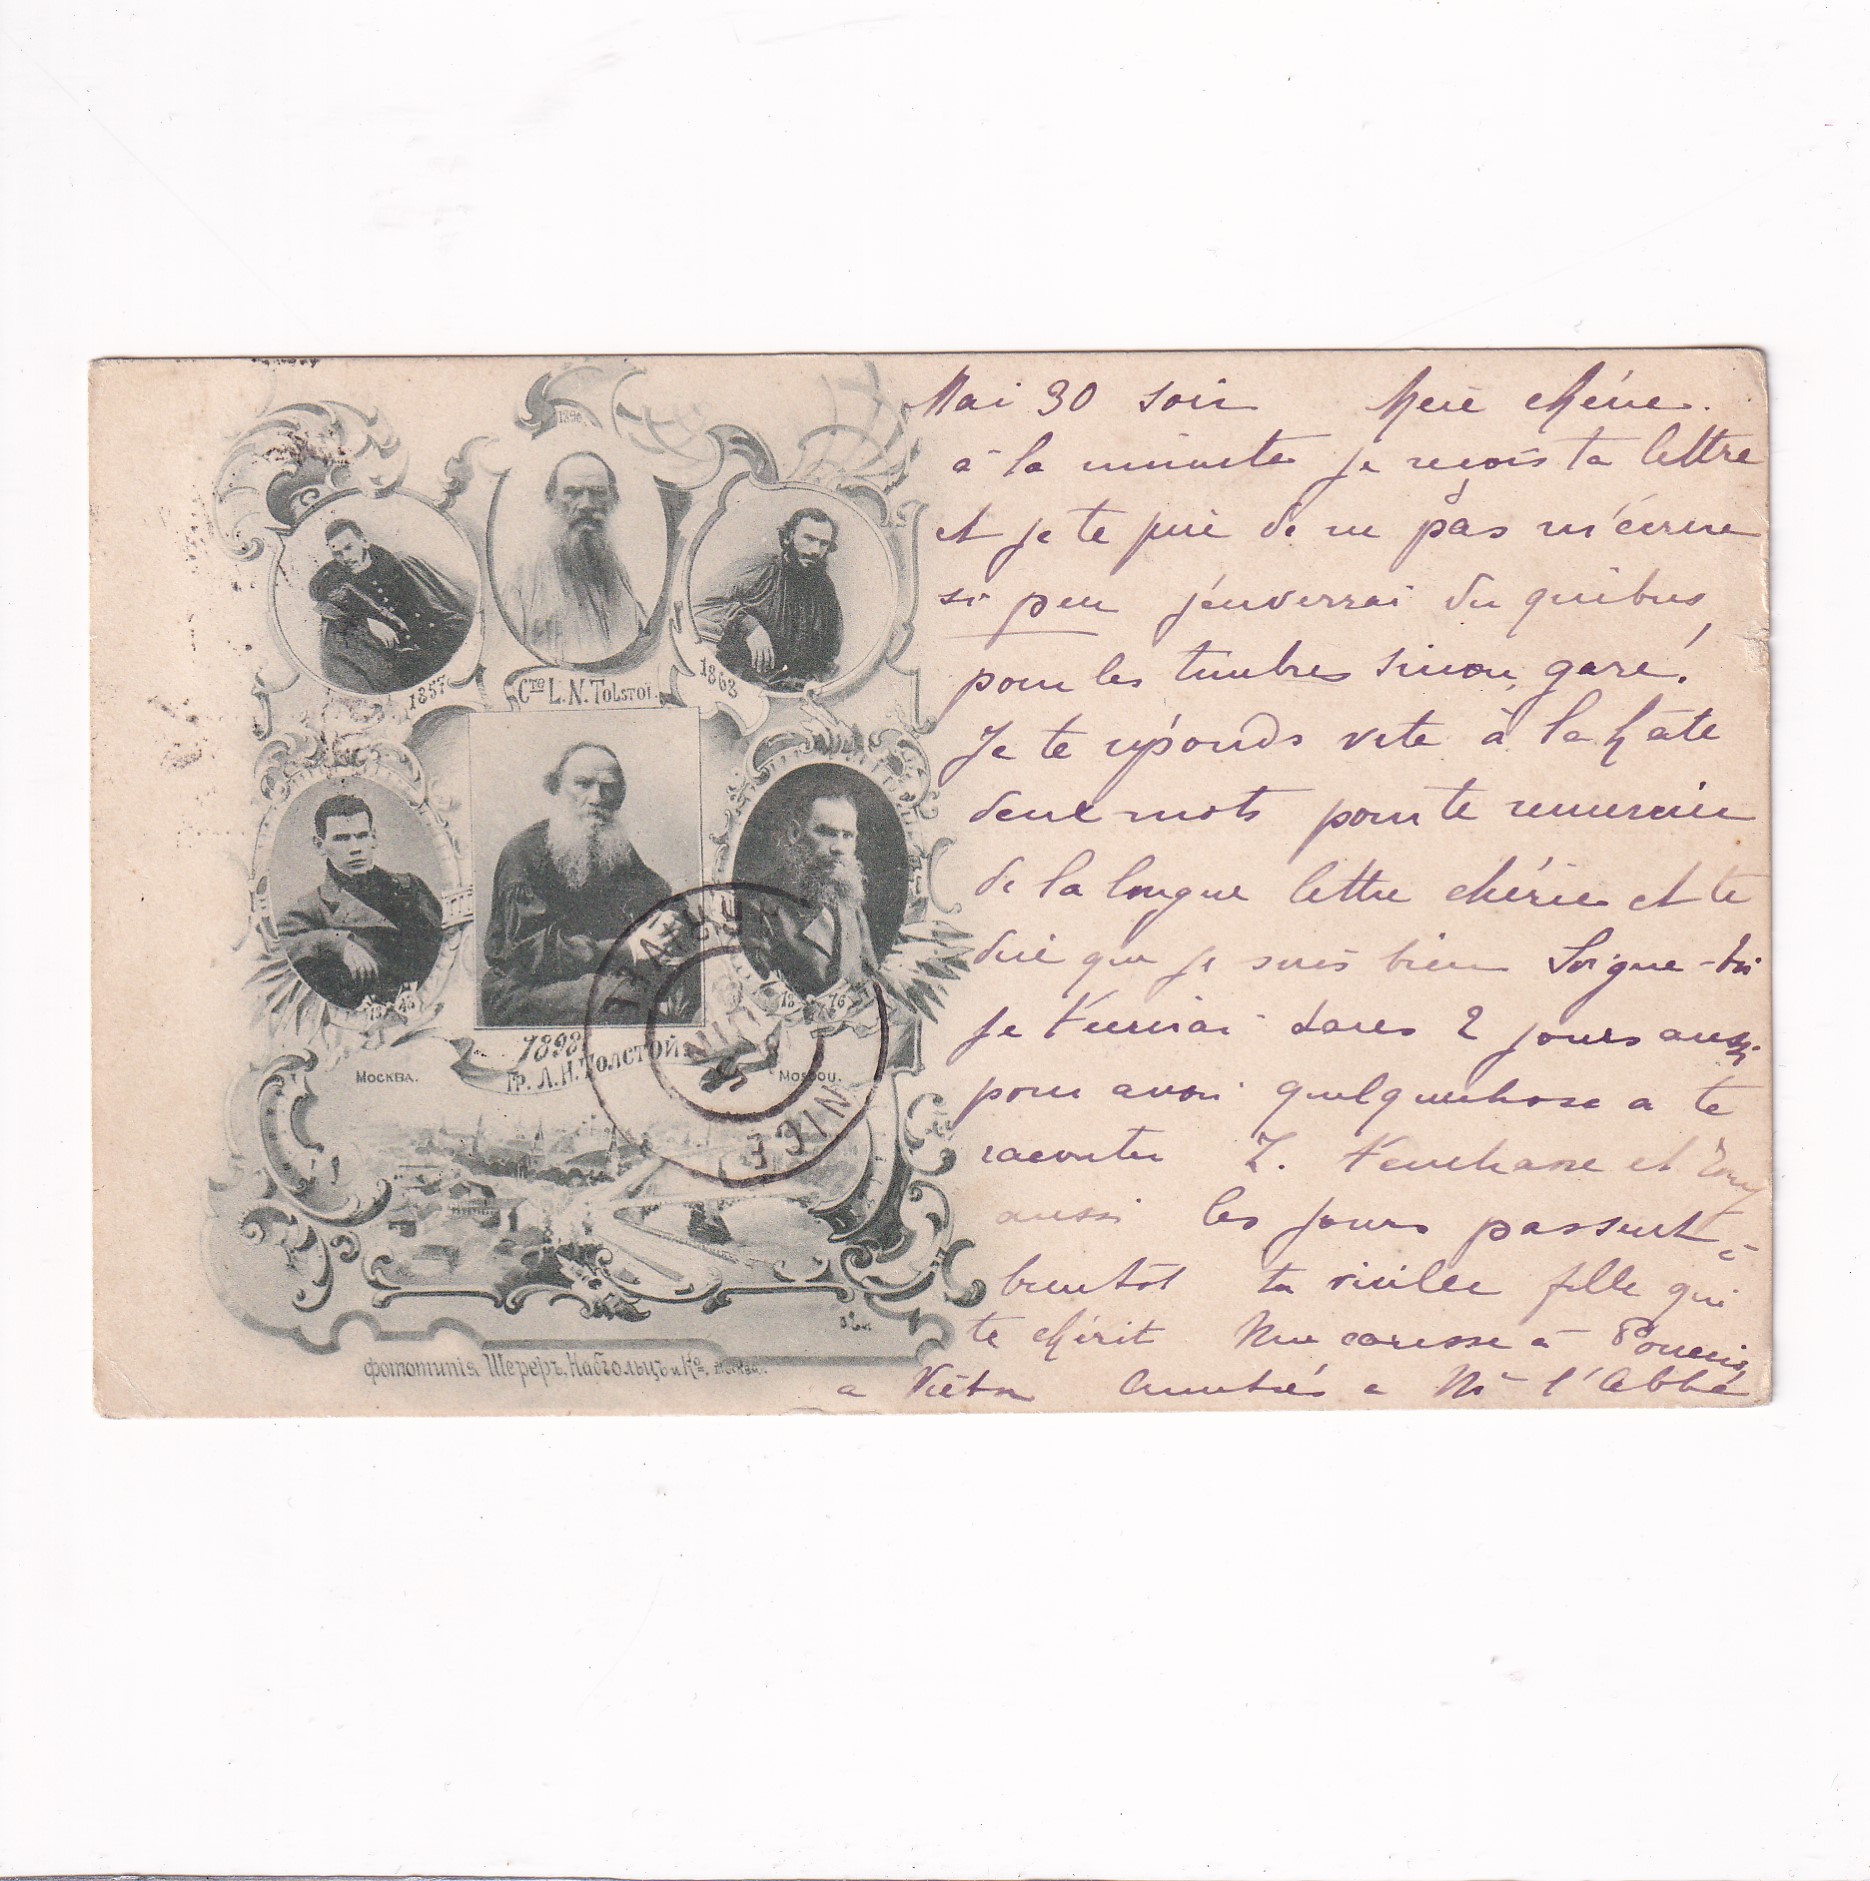 1896
1857
Cte L. N. Tolstoï.
1868
1848
1876
1898
Гр. Л. Н. Толстой.
Москва.
Moscou.
Фототипія Шереръ, Набгольцъ и Ко. Москва.
NICE
Mai 30 soir Mère chérie.
à la minute je reçois ta lettre
et je te prie de ne pas m'écrire
si peu j'enverrai du quibus
pour les timbres sinon, gare!
Je te réponds vite à la hâte
deux mots pour te remercier
de la longue lettre chérie et te
dire que je suis bien Soigne-toi
je t'écrirai dans 2 jours aussi
pour avoir quelquechose a te
raconter et
aussi les jours passent à
bientôt ta vieille fille qui
te chérit Une caresse à
a Amitiés a Mr l'Abbé